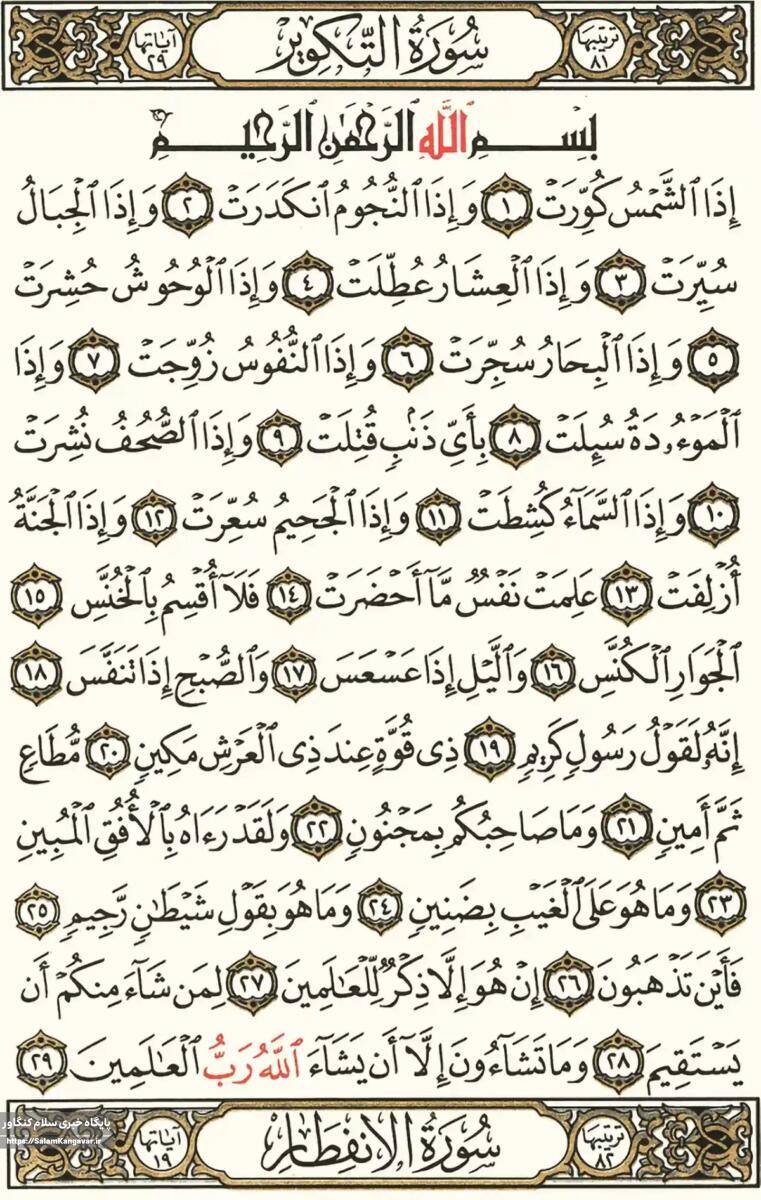 ترتيبها ٨١ سُورَةُ التَّكْوِيرِ آياتها ٢٩
بِسْمِ اللَّهِ الرَّحْمَٰنِ الرَّحِيمِ
إِذَا الشَّمْسُ كُوِّرَتْ ١ وَإِذَا النُّجُومُ انكَدَرَتْ ٢ وَإِذَا الْجِبَالُ
سُيِّرَتْ ٣ وَإِذَا الْعِشَارُ عُطِّلَتْ ٤ وَإِذَا الْوُحُوشُ حُشِرَتْ
٥ وَإِذَا الْبِحَارُ سُجِّرَتْ ٦ وَإِذَا النُّفُوسُ زُوِّجَتْ ٧ وَإِذَا
الْمَوْءُۥدَةُ سُئِلَتْ ٨ بِأَىِّ ذَنۢبٍ قُتِلَتْ ٩ وَإِذَا الصُّحُفُ نُشِرَتْ
١٠ وَإِذَا السَّمَآءُ كُشِطَتْ ١١ وَإِذَا الْجَحِيمُ سُعِّرَتْ ١٢ وَإِذَا الْجَنَّةُ
أُزْلِفَتْ ١٣ عَلِمَتْ نَفْسٌ مَّآ أَحْضَرَتْ ١٤ فَلَآ أُقْسِمُ بِالْخُنَّسِ ١٥
الْجَوَارِ الْكُنَّسِ ١٦ وَالَّيْلِ إِذَا عَسْعَسَ ١٧ وَالصُّبْحِ إِذَا تَنَفَّسَ ١٨
إِنَّهُۥ لَقَوْلُ رَسُولٍ كَرِيمٍ ١٩ ذِى قُوَّةٍ عِندَ ذِى الْعَرْشِ مَكِينٍ ٢٠ مُّطَاعٍ
ثَمَّ أَمِينٍ ٢١ وَمَا صَاحِبُكُم بِمَجْنُونٍ ٢٢ وَلَقَدْ رَءَاهُ بِالْأُفُقِ الْمُبِينِ
٢٣ وَمَا هُوَ عَلَى الْغَيْبِ بِضَنِينٍ ٢٤ وَمَا هُوَ بِقَوْلِ شَيْطَٰنٍ رَّجِيمٍ ٢٥
فَأَيْنَ تَذْهَبُونَ ٢٦ إِنْ هُوَ إِلَّا ذِكْرٌ لِّلْعَٰلَمِينَ ٢٧ لِمَن شَآءَ مِنكُمْ أَن
يَسْتَقِيمَ ٢٨ وَمَا تَشَآءُونَ إِلَّآ أَن يَشَآءَ اللَّهُ رَبُّ الْعَٰلَمِينَ ٢٩
ترتيبها ٨٢ سُورَةُ الِانفِطَارِ آياتها ١٩
پایگاه خبری سلام کنگاور
https://SalamKangavar.ir